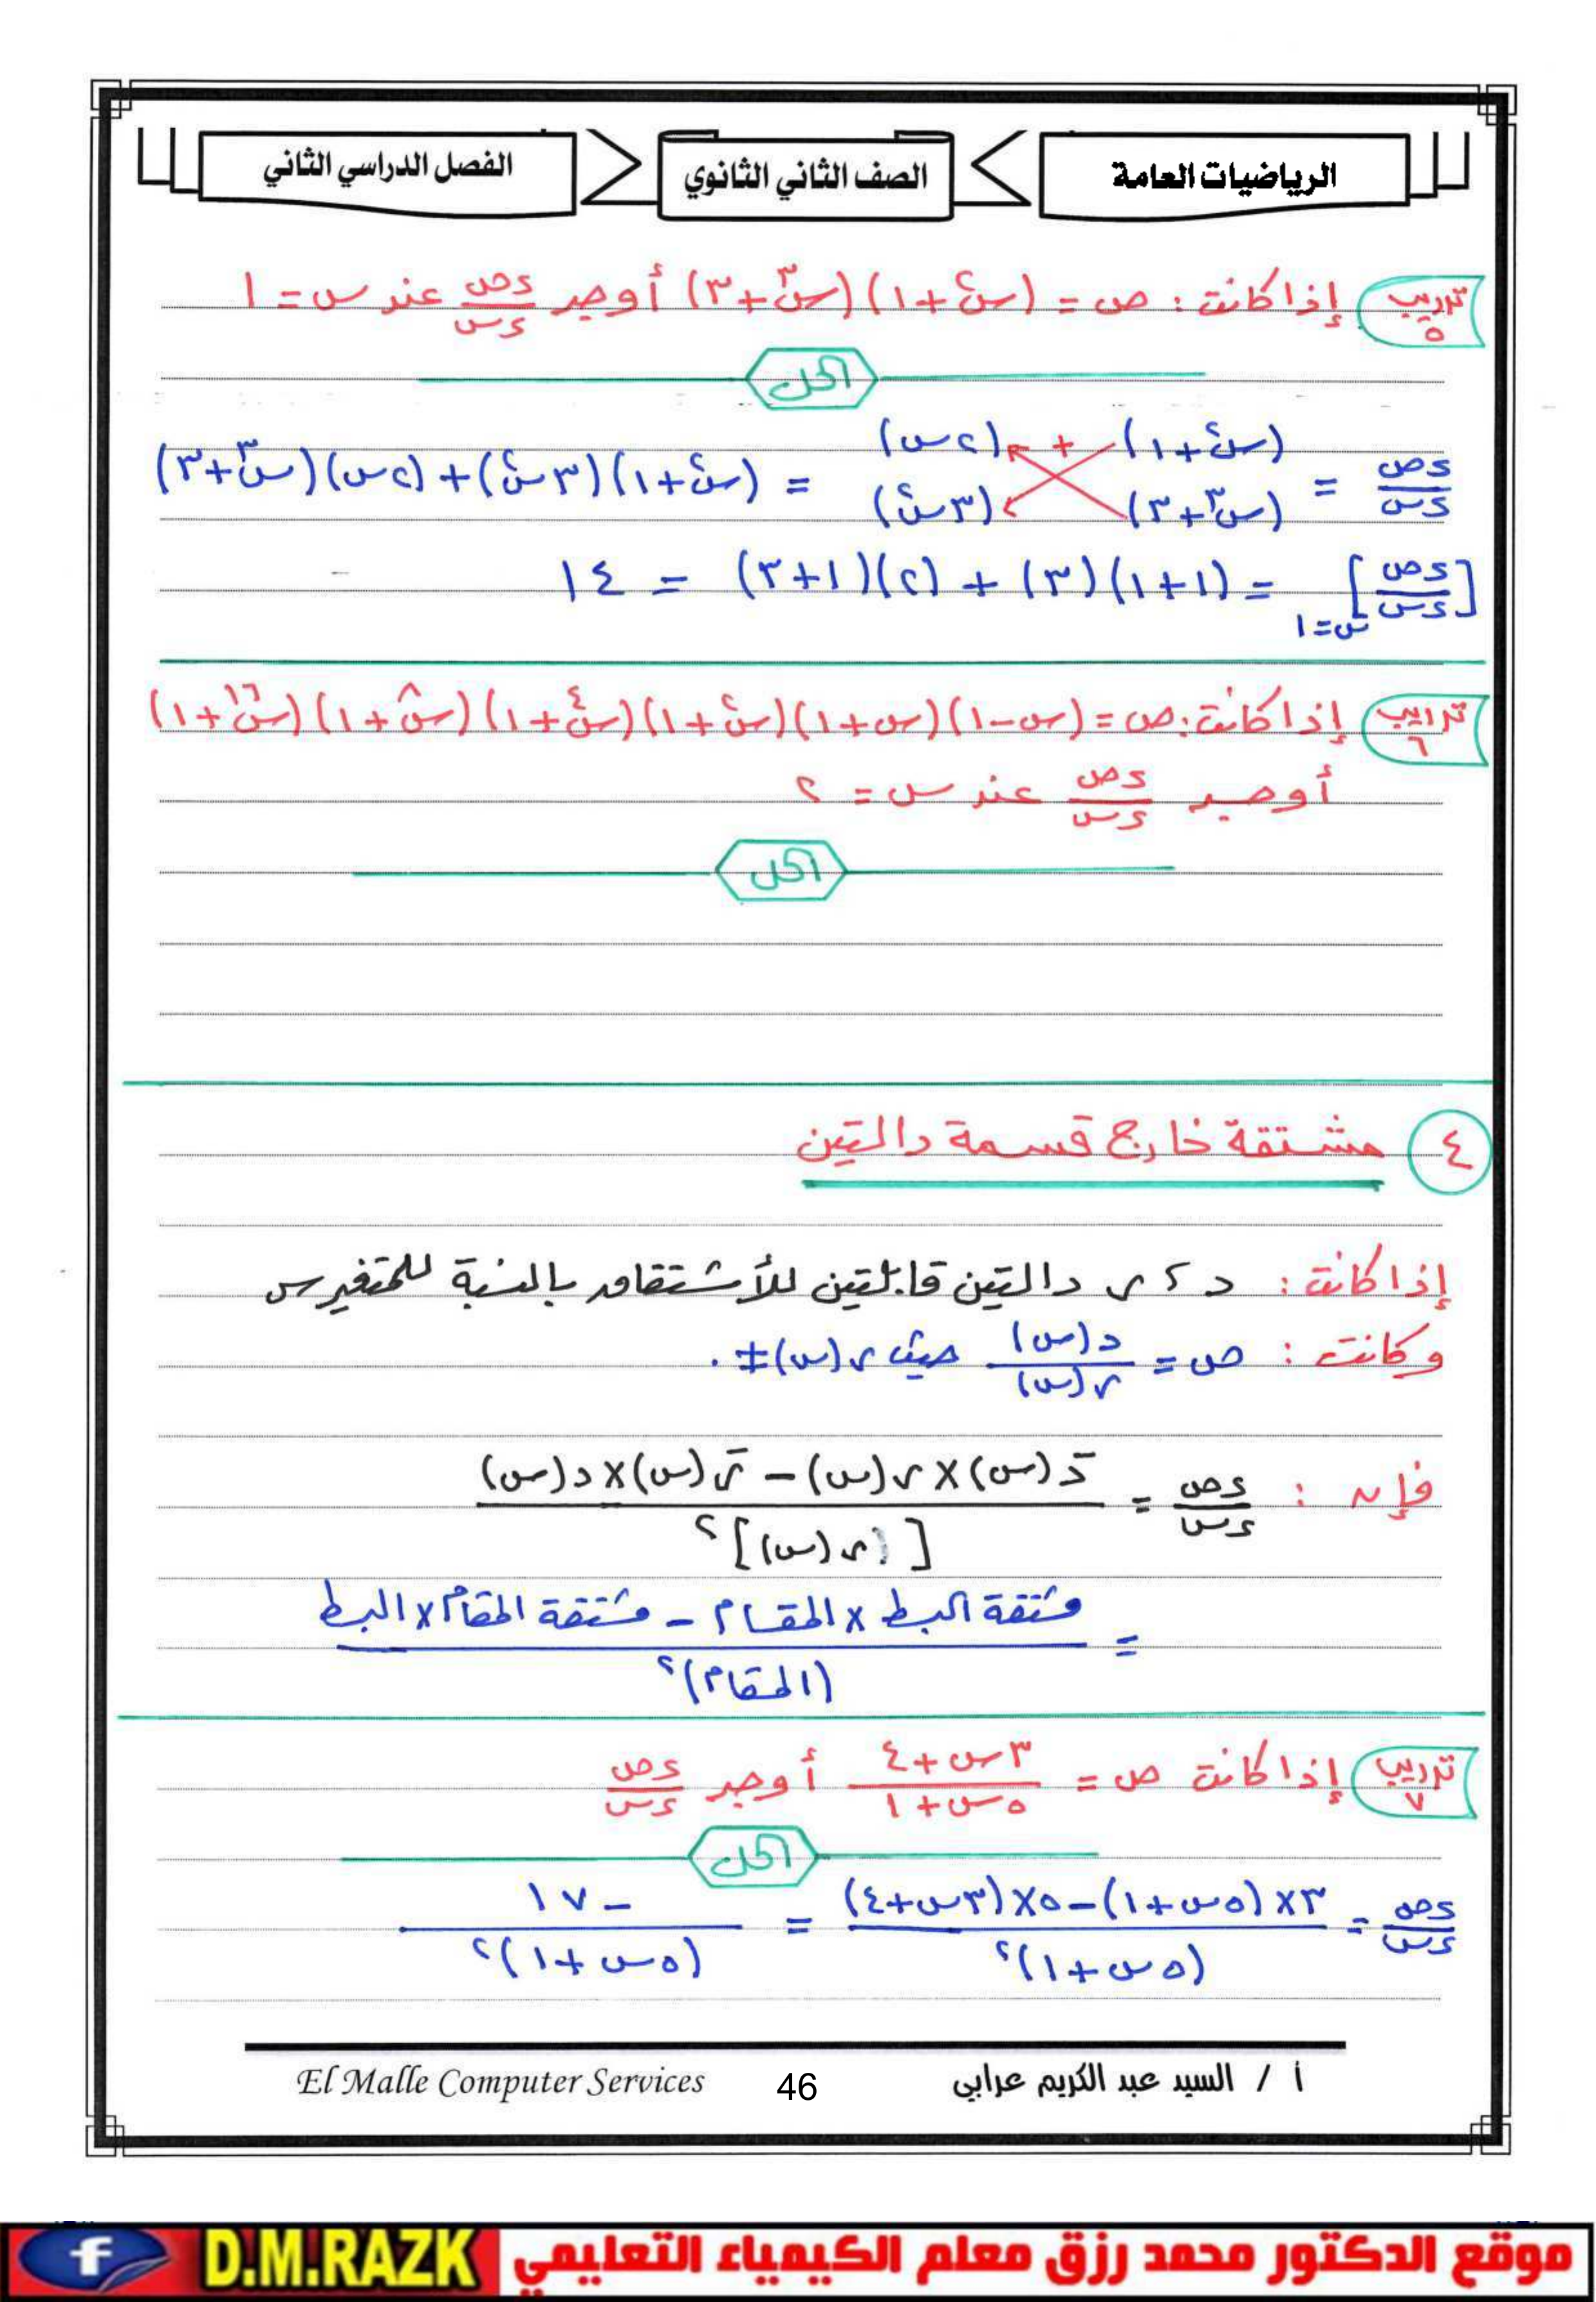 الرياضيات العامة
الصف الثاني الثانوي
الفصل الدراسي الثاني
تدريب ٥ إذا كانت: ص = (س٢ + ١)(س٣ + ٣) أوجد ءص/ءس عند س = ١
الحل
ءص/ءس = (س٢ + ١) + (٢س) (س٣ + ٣) (٣س٢) = (س٢ + ١)(٣س٢) + (٢س)(س٣ + ٣)
[ءص/ءس] س=١ = (١+١)(٣) + (٢)(١+٣) = ١٤
تدريب ٦ إذا كانت: ص = (س-١)(س+١)(س٢+١)(س٤+١)(س٨+١)(س١٦+١)
أوجد ءص/ءس عند س = ٢
الحل
٤ مشتقة خارج قسمة دالتين
إذا كانت: د ، ر دالتين قابلتين للأشتقاق بالنسبة للمتغير س
وكانت: ص = د(س)/ر(س) حيث ر(س) ≠ ٠
فإن: ءص/ءس = (دَ(س) × ر(س) - رَ(س) × د(س)) / [ر(س)]٢
= (مشتقة البسط × المقام - مشتقة المقام × البسط) / (المقام)٢
تدريب ٧ إذا كانت ص = (٣س + ٤)/(٥س + ١) أوجد ءص/ءس
الحل
ءص/ءس = (٣×(٥س+١) - ٥×(٣س+٤)) / (٥س+١)٢ = -١٧ / (٥س+١)٢
أ / السيد عبد الكريم عرابي
46
El Malle Computer Services
موقع الدكتور محمد رزق معلم الكيمياء التعليمي
D.M.RAZK
f